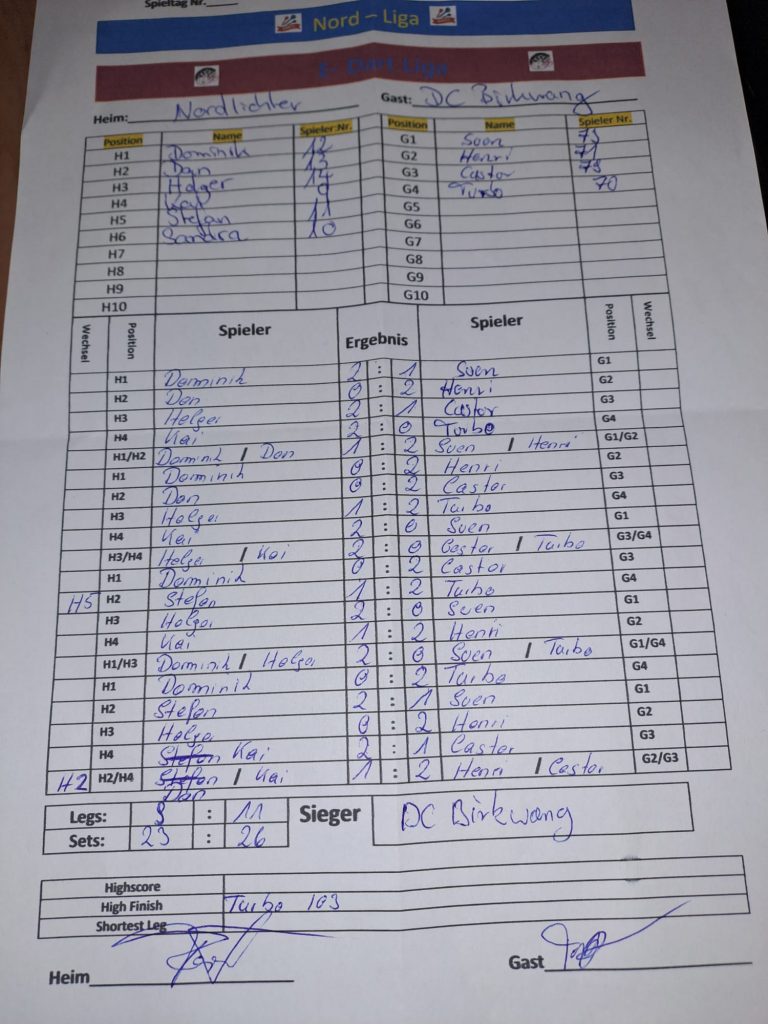 Spieltag Nr.
Nord – Liga
E- Dart Liga
Heim: Nordlichter Gast: DC Birkwang
Position Name Spieler Nr. Position Name Spieler Nr.
H1 Dominik 12 G1 Sven 73
H2 Dan 13 G2 Henri 71
H3 Holger 14 G3 Castor
H4 Kai G4 Turbo 70
H5 Stefan 11 G5
H6 Sandra 10 G6
H7 G7
H8 G8
H9 G9
H10 G10
Wechsel Position Spieler Ergebnis Spieler Position Wechsel
H1 Dominik 2 : 1 Sven G1
H2 Dan 0 : 2 Henri G2
H3 Holger 2 : 1 Castor G3
H4 Kai 2 : 0 Turbo G4
H1/H2 Dominik / Dan 1 : 2 Sven / Henri G1/G2
H1 Dominik 0 : 2 Henri G2
H2 Dan 0 : 2 Castor G3
H3 Holger 1 : 2 Turbo G4
H4 Kai 2 : 0 Sven G1
H3/H4 Holger / Kai 2 : 0 Castor / Turbo G3/G4
H1 Dominik 0 : 2 Castor G3
H5 H2 Stefan 1 : 2 Turbo G4
H3 Holger 2 : 0 Sven G1
H4 Kai 1 : 2 Henri G2
H1/H3 Dominik / Holger 2 : 0 Sven / Turbo G1/G4
H1 Dominik 0 : 2 Turbo G4
H2 Stefan 2 : 1 Sven G1
H3 Holger 0 : 2 Henri G2
H4 Stefan Kai 2 : 1 Castor G3
H2 H2/H4 Stefan / Kai 1 : 2 Henri / Castor G2/G3
Dan
Legs: 9 : 11 Sieger DC Birkwang
Sets: 23 : 26
Highscore
High Finish Turbo 103
Shortest Leg
Heim Gast